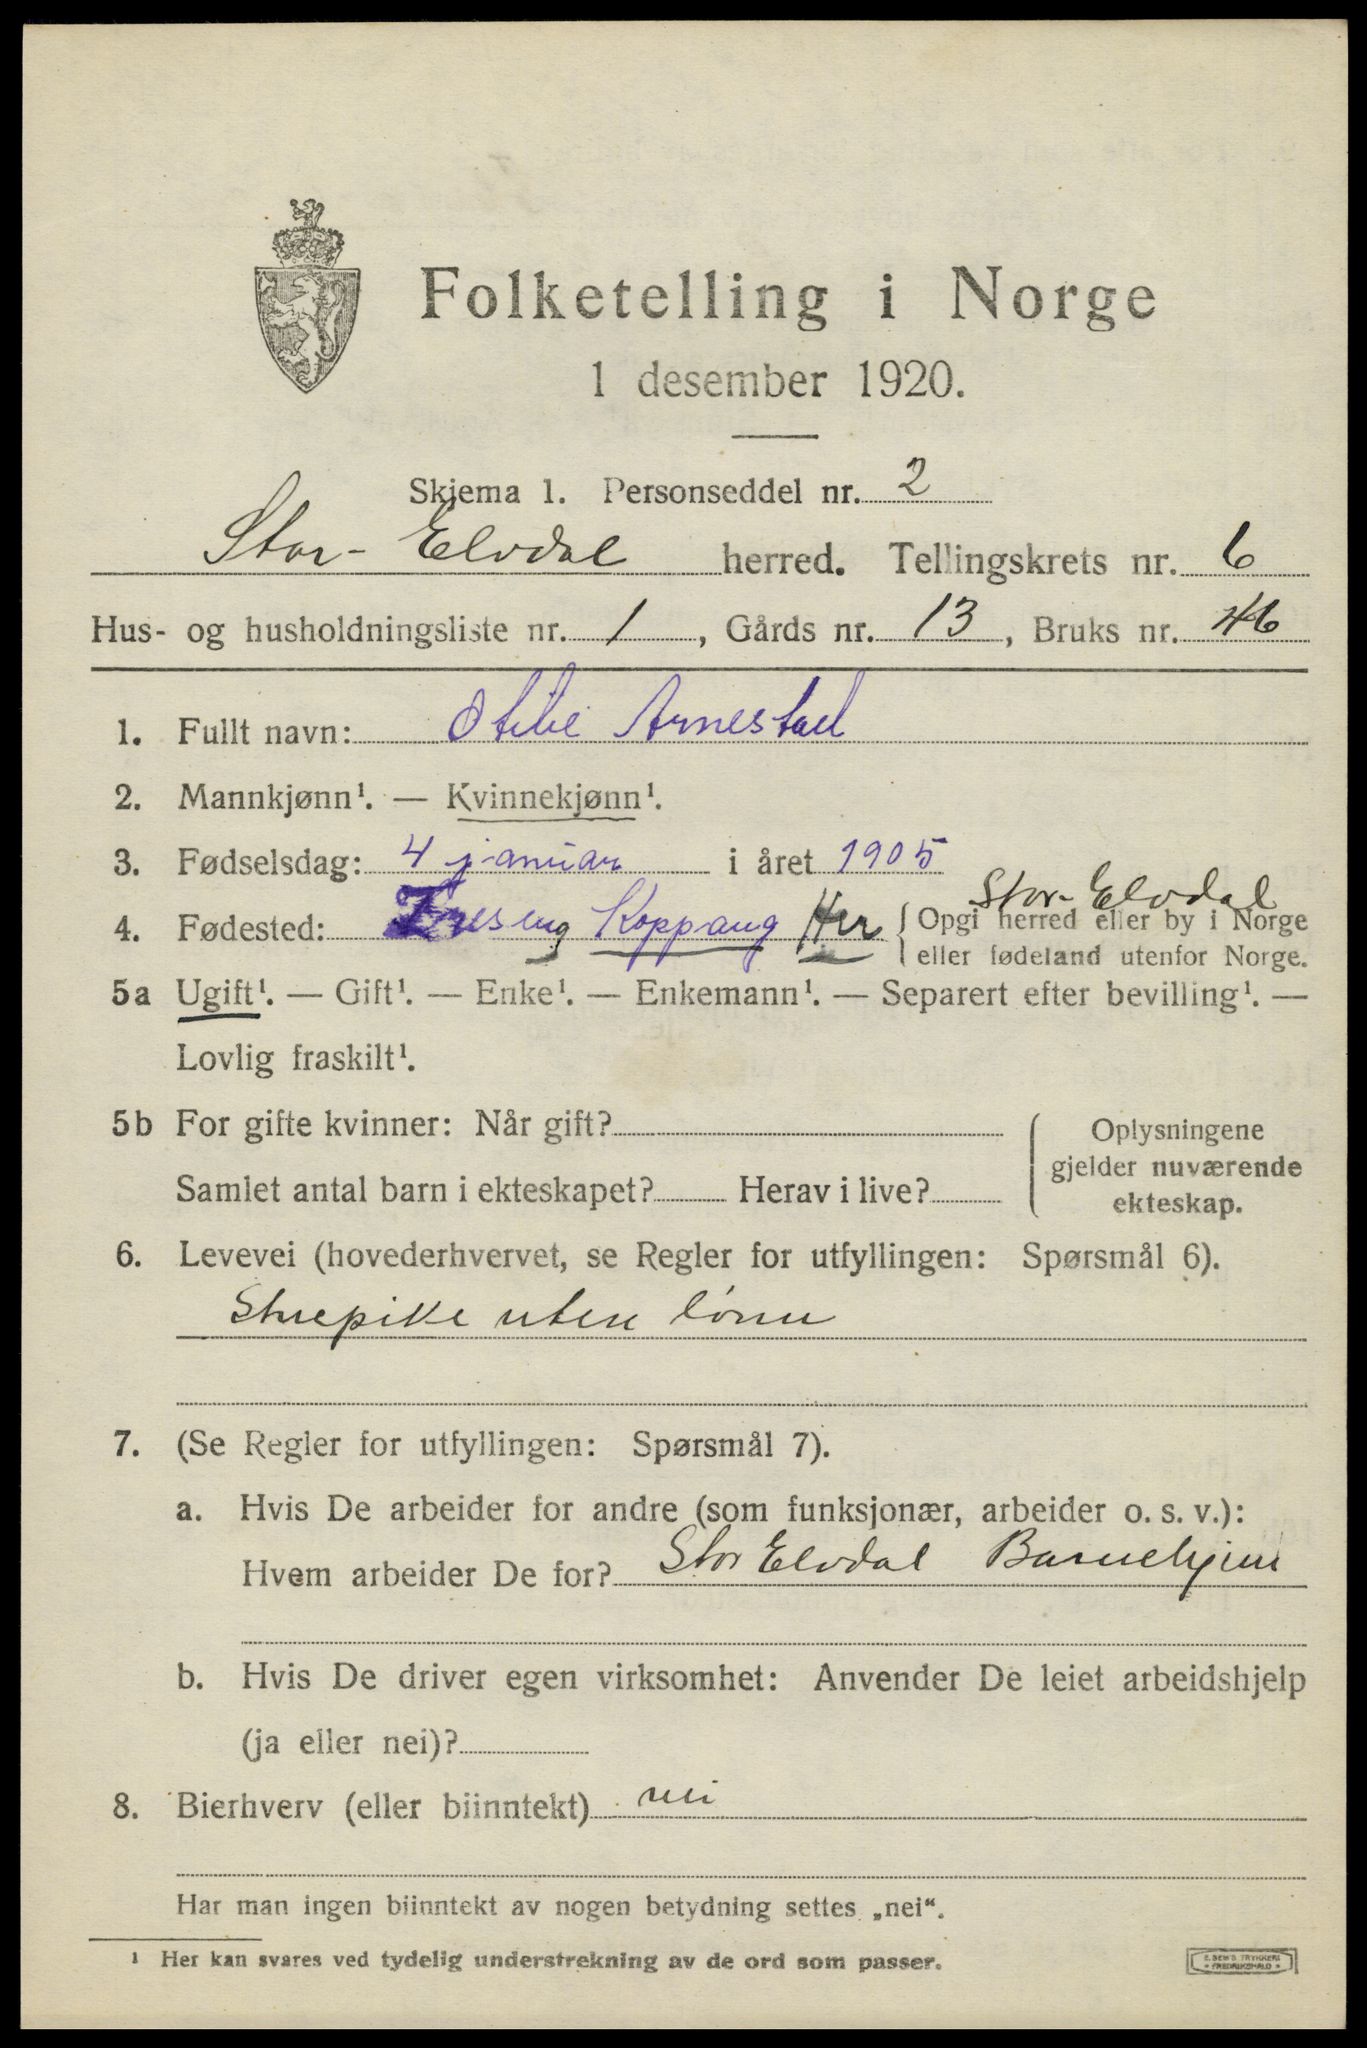 Folketelling i Norge
1 desember 1920.
Skjema 1. Personseddel nr. 2
Stor-Elvdal herred. Tellingskrets nr. 6
Hus- og husholdningsliste nr. 1, Gårds nr. 13, Bruks nr. 46
1. Fullt navn: Arnestad
2. Mannkjønn¹. — Kvinnekjønn¹.
3. Fødselsdag: 4 januar i året 1905
Stor-Elvdal
4. Fødested: Koppang Her { Opgi herred eller by i Norge
eller fødeland utenfor Norge.
5a Ugift¹. — Gift¹. — Enke¹. — Enkemann¹. — Separert efter bevilling¹. —
Lovlig fraskilt¹.
5b For gifte kvinner: Når gift? { Oplysningene
gjelder nuværende
Samlet antal barn i ekteskapet? Herav i live?
ekteskap.
6. Levevei (hovederhvervet, se Regler for utfyllingen: Spørsmål 6).
Stuepike uten lønn
7. (Se Regler for utfyllingen: Spørsmål 7).
a. Hvis De arbeider for andre (som funksjonær, arbeider o. s. v.):
Hvem arbeider De for? Stor Elvdal Barnehjem
b. Hvis De driver egen virksomhet: Anvender De leiet arbeidshjelp
(ja eller nei)?
8. Bierhverv (eller biinntekt) nei
Har man ingen biinntekt av nogen betydning settes „nei“.
¹ Her kan svares ved tydelig understrekning av de ord som passer.
E. SEM'S TRYKKERI
FREDRIKSHALD